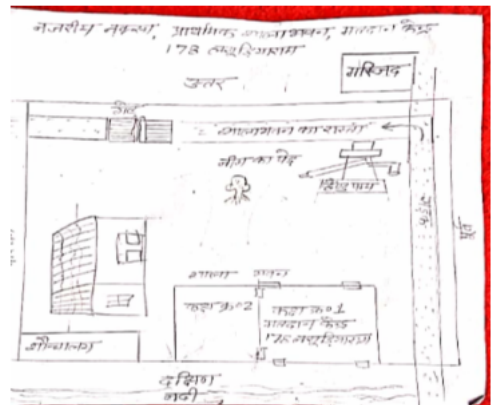 नजरीय नक्शा, प्राथमिक शाला भवन, मतदान केंद्र
178
उत्तर
मस्जिद
गेट
शालाभवन का रास्ता
नीम का पेड़
सड़क
पूर्व
शाला भवन
कक्ष क्र०2
कक्ष क्र०1
मतदान केंद्र
178
शौचालय
दक्षिण
नदी